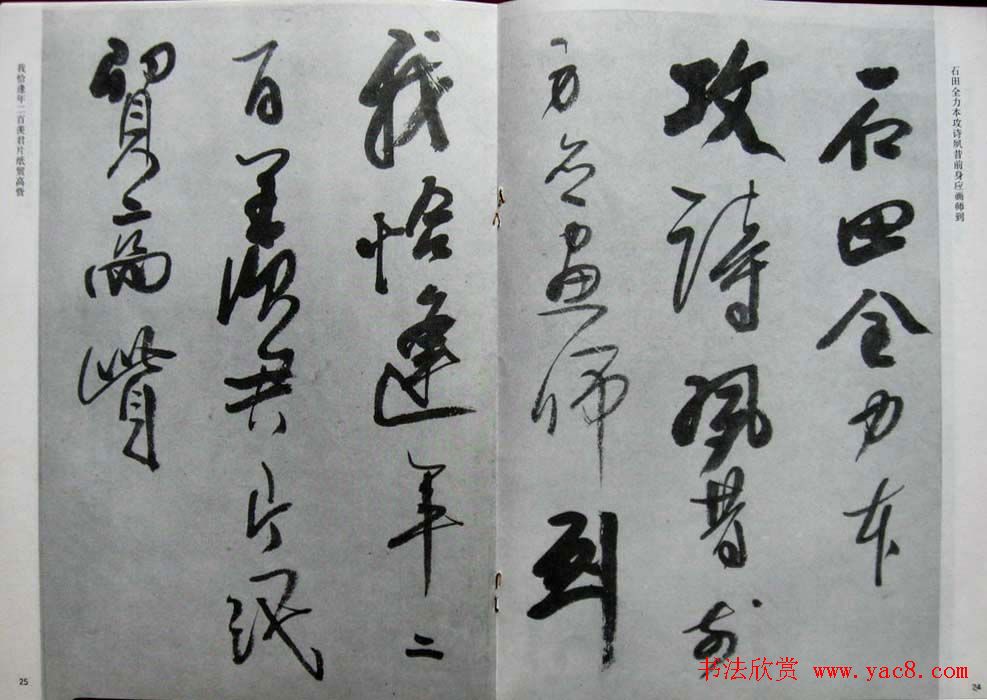 石田全力本攻诗夙昔前身应画师到
石田全力本
攻詩夙昔前
身应畫師到
我恰逢年二
百羡君片紙
貿高貲
我恰逢年二百羡君片纸贸高赀
24
25
书法欣赏 www.yac8.com